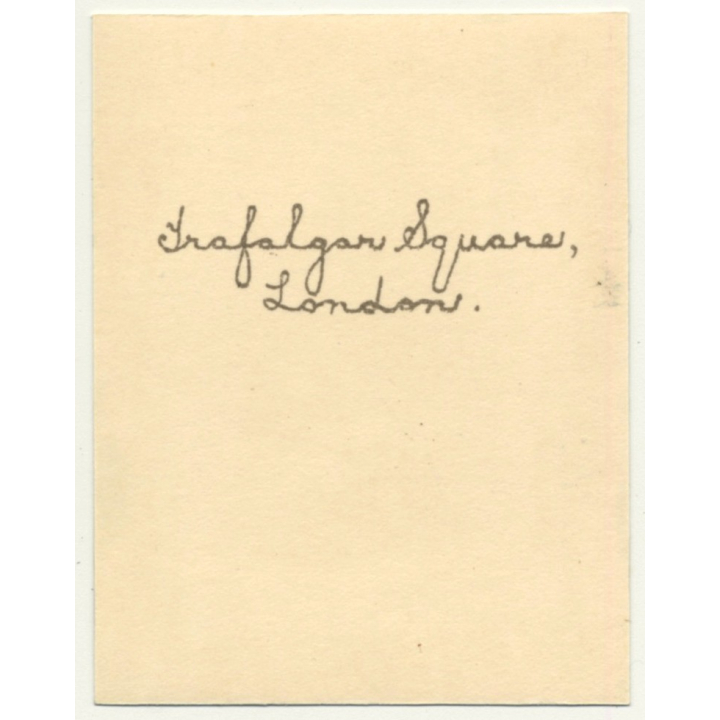 Trafalgar Square,
London.